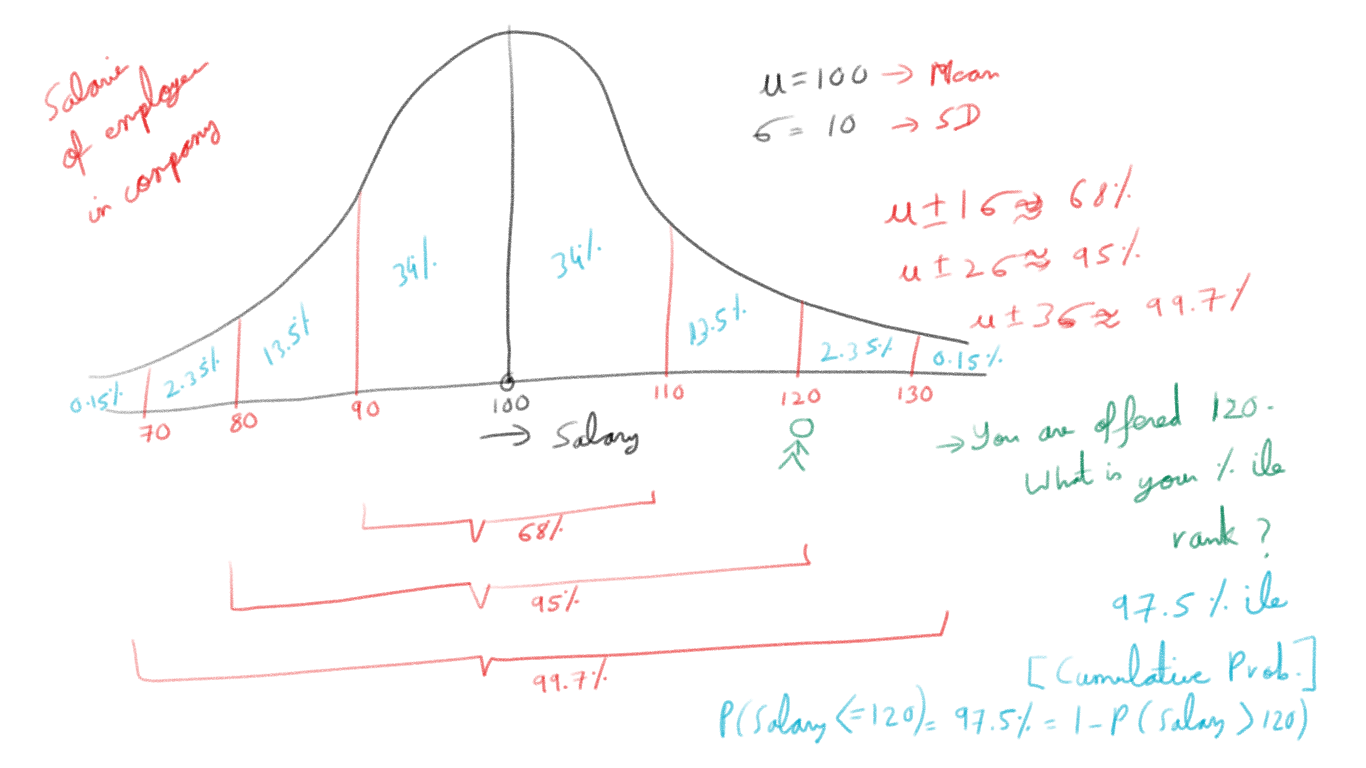 Salarie
of employee
in company
μ = 100 → Mean
σ = 10 → SD
μ ± 1σ ≈ 68%
μ ± 2σ ≈ 95%
μ ± 3σ ≈ 99.7%
34% 34%
13.5% 13.5%
0.15% 2.35% 2.35% 0.15%
70 80 90 100 110 120 130
→ Salary
→ You are offered 120.
What is your % ile
rank?
68%
95%
99.7%
97.5 % ile
[Cumulative Prob.]
P(Salary <= 120) = 97.5% = 1 - P(Salary > 120)